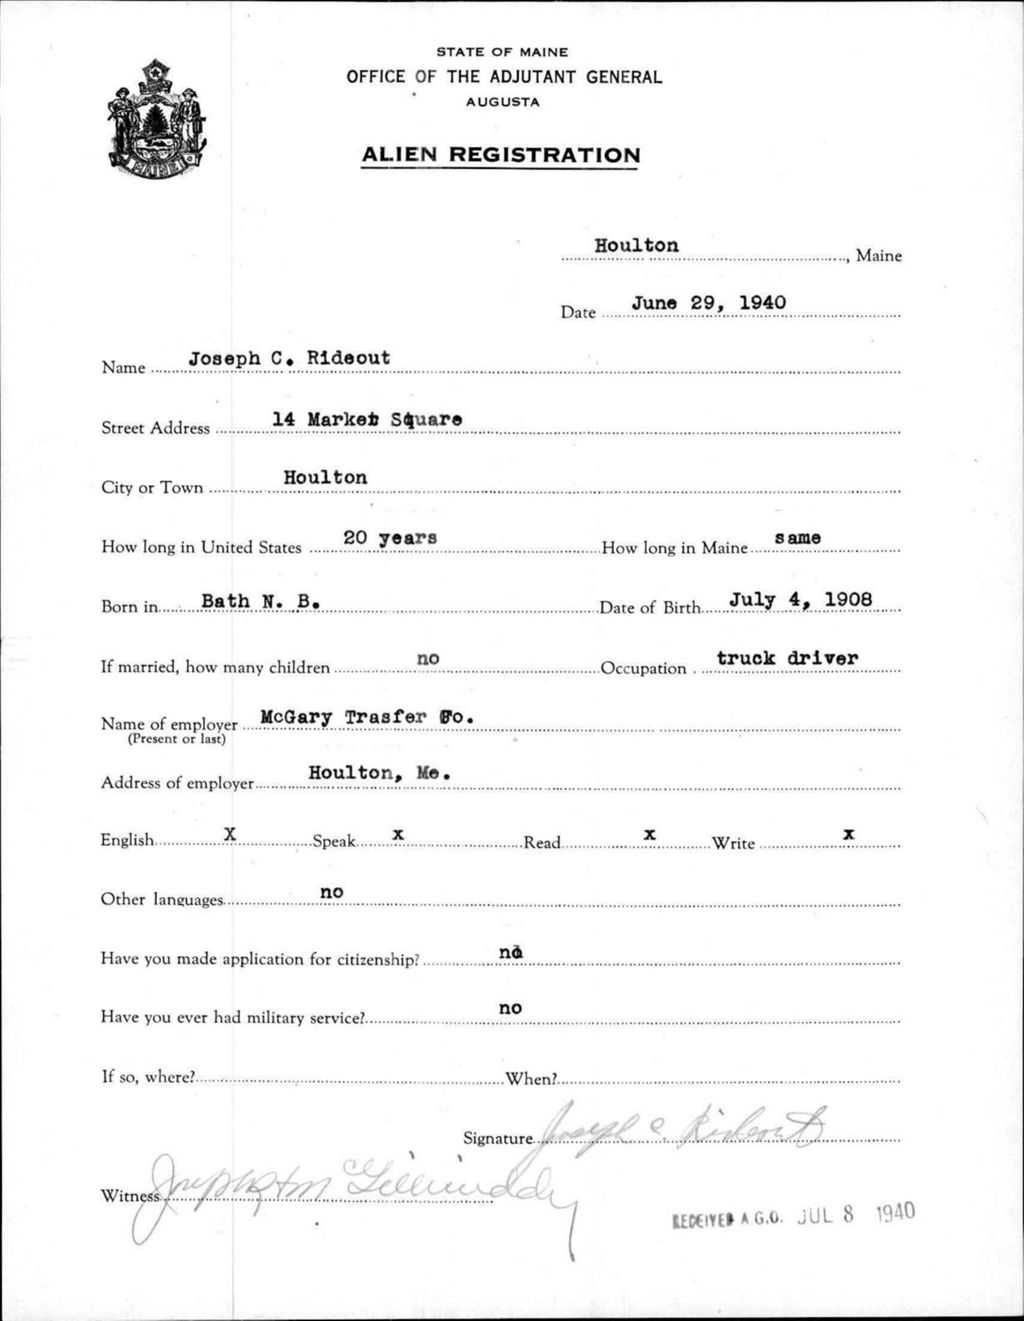 STATE OF MAINE
OFFICE OF THE ADJUTANT GENERAL
AUGUSTA
ALIEN REGISTRATION
MAINE
Houlton, Maine
Date June 29, 1940
Name Joseph C. Rideout
Street Address 14 Market Square
City or Town Houlton
How long in United States 20 years How long in Maine same
Born in Bath N. B. Date of Birth July 4, 1908
If married, how many children no Occupation truck driver
Name of employer McGary Trasfer Co.
(Present or last)
Address of employer Houlton, Me.
English X Speak x Read x Write x
Other languages no
Have you made application for citizenship? no
Have you ever had military service? no
If so, where? When?
Signature Joseph C. Rideout
Witness
RECEIVED A.G.O. JUL 8 1940